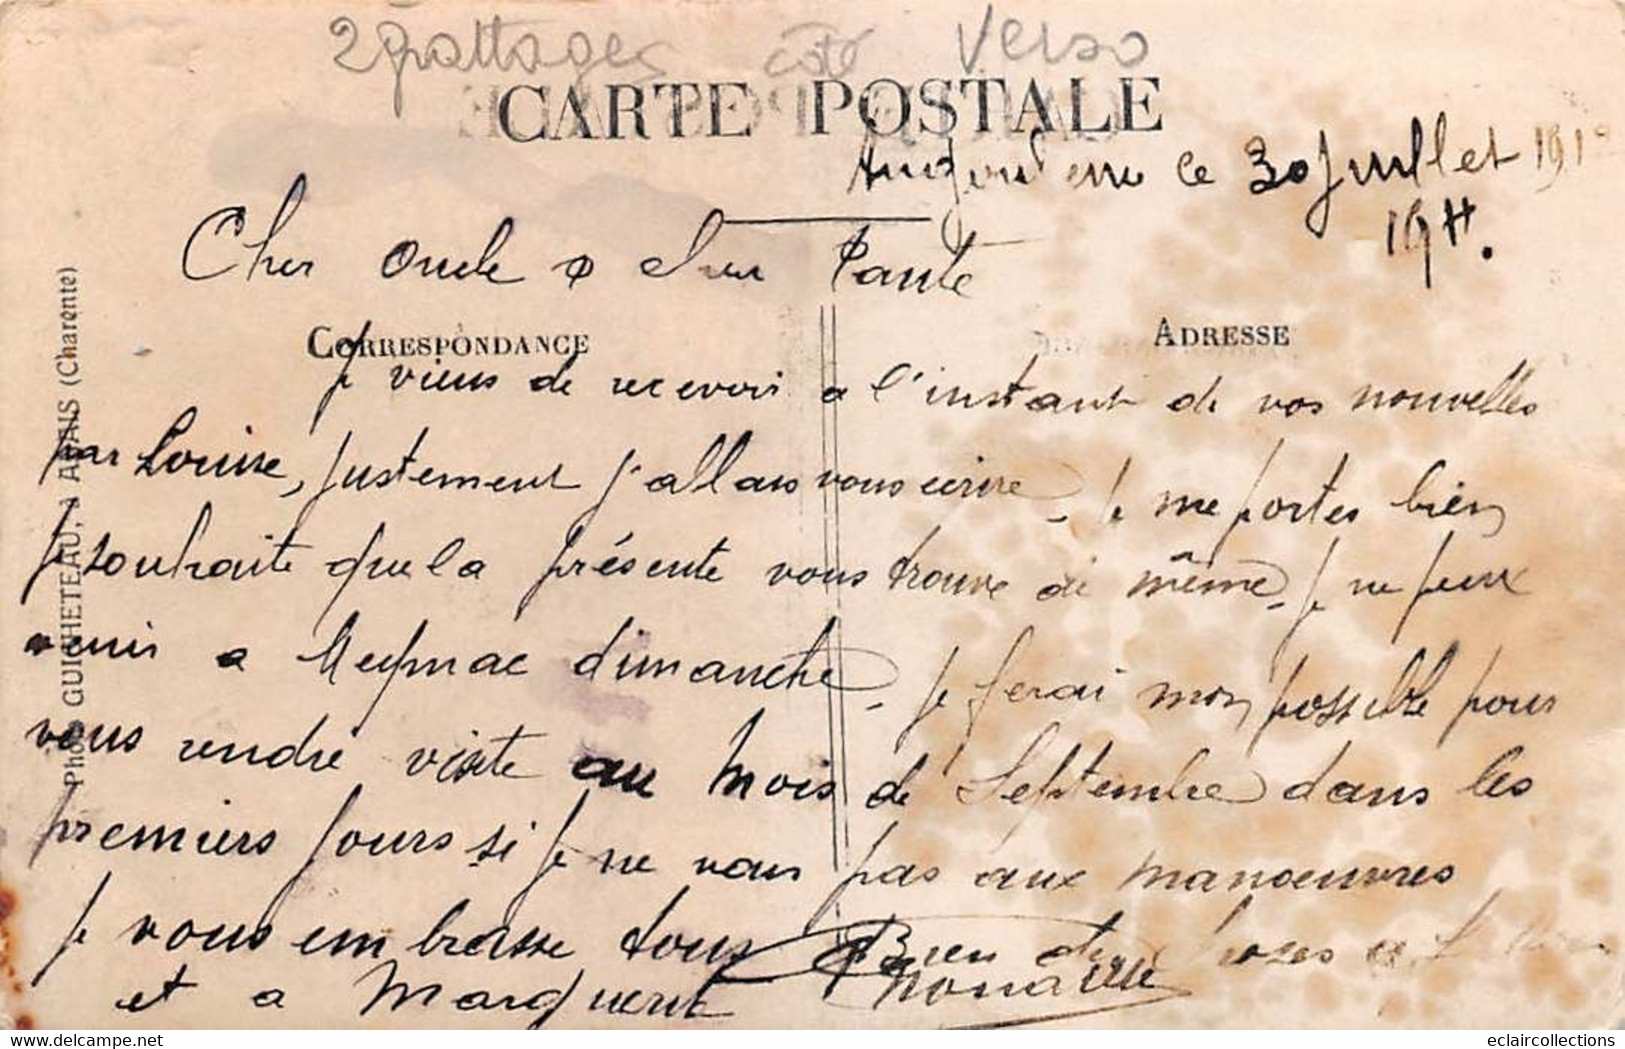 2 grattages côté verso
CARTE POSTALE
le 30 Juillet 191
19 H.
Cher Oncle & cher Tante
CORRESPONDANCE
ADRESSE
Je viens de recevoir a l'instant de vos nouvelles
par Louise, justement j'allais vous ecrire. Je me portes bien
Je souhaite que la présente vous trouve de même. Je ne peux
venir a Meymac dimanche. Je ferai mon possible pour
vous rendre visite au mois de Septembre dans les
premiers jours si je ne vais pas aux manoeuvres
Je vous embrasse tous Bien des choses a
et a Marguerite
Phot. GUICHETEAU, à ANAIS (Charente)
eclaircollections